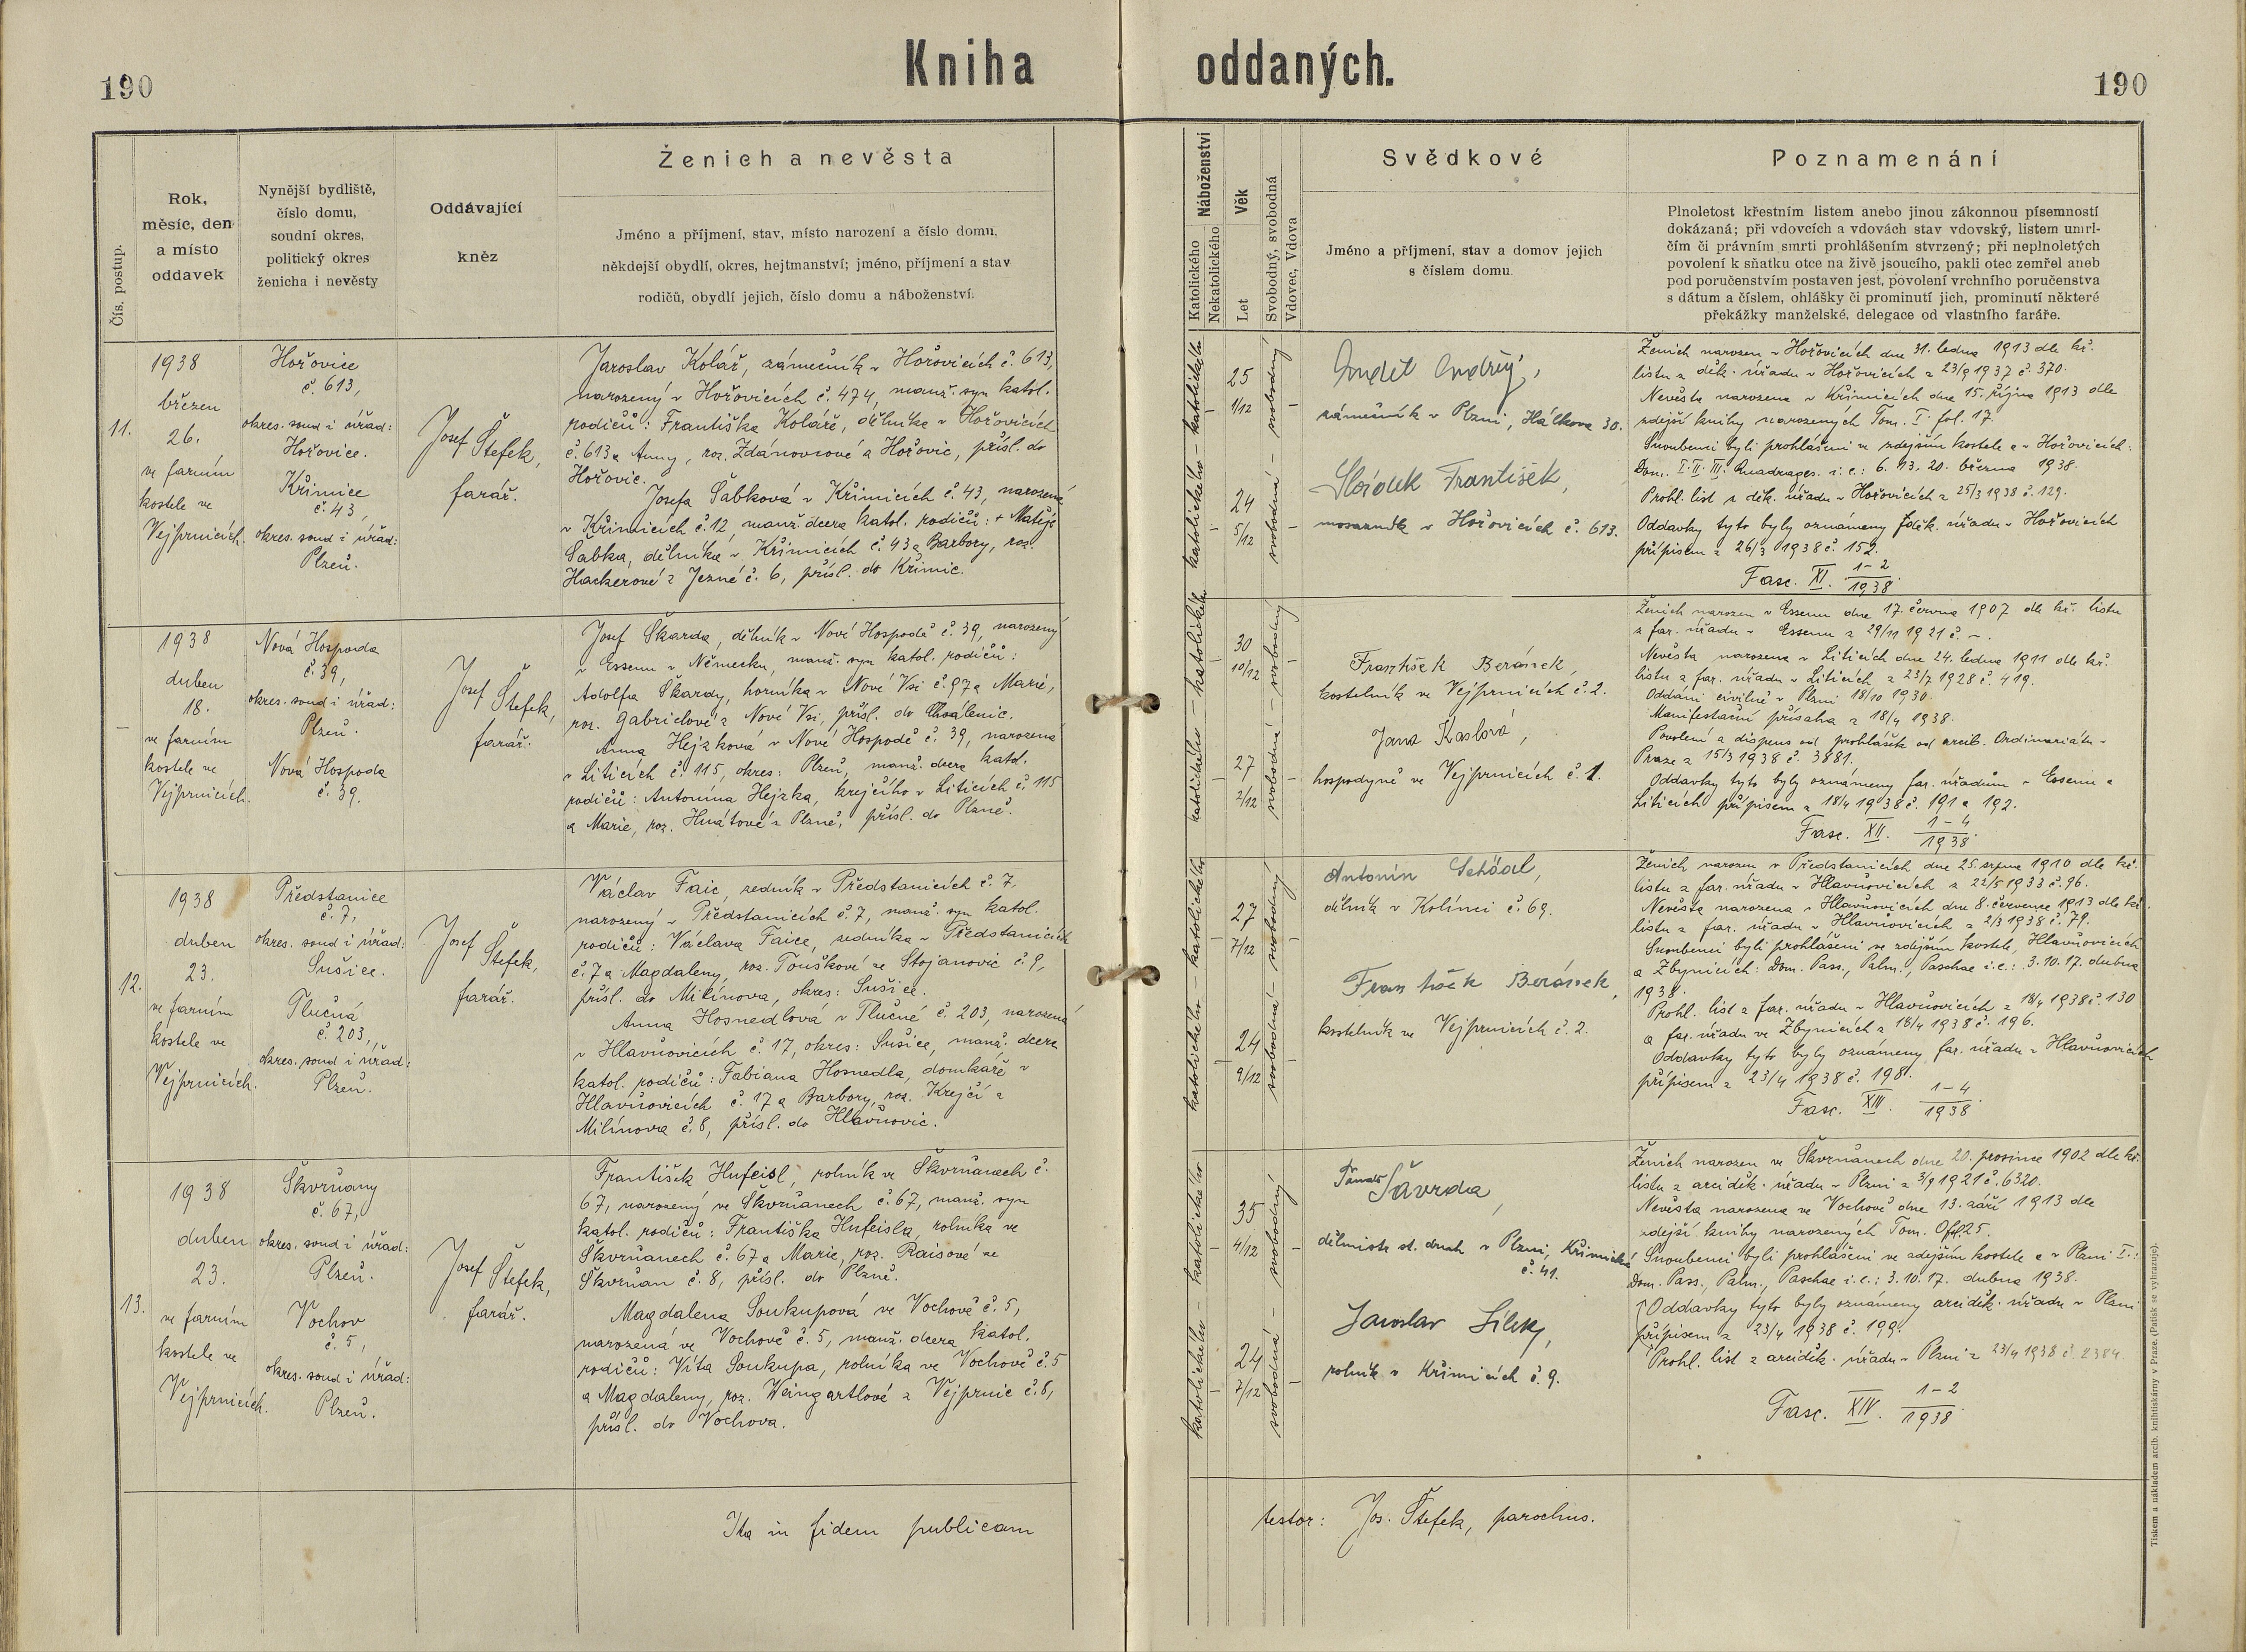 Kniha oddaných.
190
190
Čís. postup.
Rok,
měsíc, den
a místo
oddavek
Nynější bydliště,
číslo domu,
soudní okres,
politický okres
ženicha i nevěsty
Oddávající
kněz
Ženich a nevěsta
Jméno a příjmení, stav, místo narození a číslo domu,
někdejší obydlí, okres, hejtmanství; jméno, příjmení a stav
rodičů, obydlí jejich, číslo domu a náboženství.
Náboženství
Katolického
Nekatolického
Věk
Let
Svobodný, svobodná
Vdovec, Vdova
Svědkové
Jméno a příjmení, stav a domov jejich
s číslem domu.
Poznamenání
Plnoletost křestním listem anebo jinou zákonnou písemností
dokázaná; při vdovcích a vdovách stav vdovský, listem umrl-
čím či právním smrti prohlášením stvrzený; při neplnoletých
povolení k sňatku otce na živě jsoucího, pakli otec zemřel aneb
pod poručenstvím postaven jest, povolení vrchního poručenstva
s dátum a číslem, ohlášky či prominutí jich, prominutí některé
překážky manželské, delegace od vlastního faráře.
11.
1938
březen
26.
ve farním
kostele ve
Vejprnicích.
Hořovice
č. 613,
okres. soud i úřad:
Hořovice.
Křimice
č. 43,
okres. soud i úřad:
Plzeň.
Josef Štefek,
farář.
Jaroslav Kolář, zámečník v Hořovicích č. 613,
narozený v Hořovicích č. 474, manž. syn katol.
rodičů: Františka Koláře, dělníka v Hořovicích
č. 613 a Anny, roz. Zdánovcové z Hořovic, přísl. do
Hořovic.
Josefa Šabková v Křimicích č. 43, narozená
v Křimicích č. 12, manž. dcera katol. rodičů: + Matěje
Šabka, dělníka v Křimicích č. 43 a Barbory, roz.
Hackerové z Jezné č. 6, přísl. do Křimic.
katolického – katolického
25
1/12
24
5/12
svobodná – svobodný
Anděl Ondřej,
zámečník v Plzni, Hálkova 30.
František,
mosazník v Hořovicích č. 613.
Ženich narozen v Hořovicích dne 31. ledna 1913 dle kř.
listu z děk. úřadu v Hořovicích z 23/9 1937 č. 370.
Nevěsta narozena v Křimicích dne 15. října 1913 dle
zdejší knihy narozených Tom. I. fol. 17.
Snoubenci byli prohlášeni ve zdejším kostele a v Hořovicích:
Dom. I. II. III. Quadrages. i. e.: 6. 13. 20. března 1938.
Prohl. list z děk. úřadu v Hořovicích z 25/3 1938 č. 129.
Oddavky tyto byly oznámeny děk. úřadu v Hořovicích
přípisem z 26/3 1938 č. 152.
Fasc. XI. 1–2/1938.
–
1938
duben
18.
ve farním
kostele ve
Vejprnicích.
Nová Hospoda
č. 39,
okres. soud i úřad:
Plzeň.
Nová Hospoda
č. 39.
Josef Štefek,
farář.
Josef Škarda, dělník v Nové Hospodě č. 39, narozený
v Essenu v Německu, manž. syn katol. rodičů:
Adolfa Škardy, horníka v Nové Vsi č. 97 a Marie,
roz. Gabrielové z Nové Vsi, přísl. do Chválenic.
Anna Hejzková v Nové Hospodě č. 39, narozená
v Liticích č. 115, okres: Plzeň, manž. dcera katol.
rodičů: Antonína Hejzka, krejčího v Liticích č. 115
a Marie, roz. Hnátové z Plzně, přísl. do Plzně.
katolického – katolického
30
10/12
27
2/12
svobodná – svobodný
František Beránek,
kostelník ve Vejprnicích č. 2.
Jana Kaslová,
hospodyně ve Vejprnicích č. 1.
Ženich narozen v Essenu dne 17. června 1907 dle kř. listu
z far. úřadu v Essenu z 29/11 1921 č. –.
Nevěsta narozena v Liticích dne 24. ledna 1911 dle kř.
listu z far. úřadu v Liticích z 23/7 1928 č. 419.
Oddáni civilně v Plzni 18/10 1930.
Manifestační přísaha z 18/4 1938.
Povolení a dispens od prohlášek od arcib. Ordinariátu v
Praze z 15/3 1938 č. 3881.
Oddavky tyto byly oznámeny far. úřadům v Essenu a
Liticích přípisem z 18/4 1938 č. 191 a 192.
Fasc. XII. 1–4/1938.
12.
1938
duben
23.
ve farním
kostele ve
Vejprnicích.
Předstanice
č. 7,
okres. soud i úřad:
Sušice.
Tlučná
č. 203,
okres. soud i úřad:
Plzeň.
Josef Štefek,
farář.
Václav Faic, zedník v Předstanicích č. 7,
narozený v Předstanicích č. 7, manž. syn katol.
rodičů: Václava Faice, zedníka v Předstanicích
č. 7 a Magdaleny, roz. Touškové ze Stojanovic č. 9,
přísl. do Milínova, okres: Sušice.
Anna Hosnedlová v Tlučné č. 203, narozená
v Hlavňovicích č. 17, okres: Sušice, manž. dcera
katol. rodičů: Fabiana Hosnedla, domkáře v
Hlavňovicích č. 17 a Barbory, roz. Krejčí z
Milínova č. 8, přísl. do Hlavňovic.
katolického – katolického
27
7/12
24
9/12
svobodná – svobodný
Antonín Schödl,
dělník v Kolínci č. 69.
František Beránek,
kostelník ve Vejprnicích č. 2.
Ženich narozen v Předstanicích dne 25. srpna 1910 dle kř.
listu z far. úřadu v Hlavňovicích z 22/5 1933 č. 96.
Nevěsta narozena v Hlavňovicích dne 8. července 1913 dle kř.
listu z far. úřadu v Hlavňovicích z 2/3 1938 č. 79.
Snoubenci byli prohlášeni ve zdejším kostele, Hlavňovicích
a Zbynicích: Dom. Pass., Palm., Paschae i. e.: 3. 10. 17. dubna
1938.
Prohl. list z far. úřadu v Hlavňovicích z 18/4 1938 č. 130
a far. úřadu ve Zbynicích z 18/4 1938 č. 196.
Oddavky tyto byly oznámeny far. úřadu v Hlavňovicích
přípisem z 23/4 1938 č. 198.
Fasc. XIII. 1–4/1938.
13.
1938
duben
23.
ve farním
kostele ve
Vejprnicích.
Škvrňany
č. 67,
okres. soud i úřad:
Plzeň.
Vochov
č. 5,
okres. soud i úřad:
Plzeň.
Josef Štefek,
farář.
František Hufeisl, rolník ve Škvrňanech č.
67, narozený ve Škvrňanech č. 67, manž. syn
katol. rodičů: Františka Hufeisla, rolníka ve
Škvrňanech č. 67 a Marie, roz. Raisové ze
Škvrňan č. 8, přísl. do Plzně.
Magdalena Soukupová ve Vochově č. 5,
narozená ve Vochově č. 5, manž. dcera katol.
rodičů: Víta Soukupa, rolníka ve Vochově č. 5
a Magdaleny, roz. Weingartlové z Vejprnic č. 8,
přísl. do Vochova.
katolického – katolického
35
4/12
24
7/12
svobodná – svobodný
Šavrda,
st. drah v Plzni, Křimická
č. 41.
Jaroslav
rolník v Křimicích č. 9.
Ženich narozen ve Škvrňanech dne 20. prosince 1902 dle kř.
listu z arciděk. úřadu v Plzni z 3/9 1921 č. 6320.
Nevěsta narozena ve Vochově dne 13. září 1913 dle
zdejší knihy narozených Tom.
Snoubenci byli prohlášeni ve zdejším kostele a v Plzni I.:
Dom. Pass., Palm., Paschae i. e.: 3. 10. 17. dubna 1938.
Oddavky tyto byly oznámeny arciděk. úřadu v Plzni
přípisem z 23/4 1938 č. 199.
Prohl. list z arciděk. úřadu v Plzni z 23/4 1938 č. 2384.
Fasc. XIV. 1–2/1938.
Ita in fidem publicam testor: Jos. Štefek, parochus.
Tiskem a nákladem arcib. knihtiskárny v Praze. (Patisk se vyhrazuje).